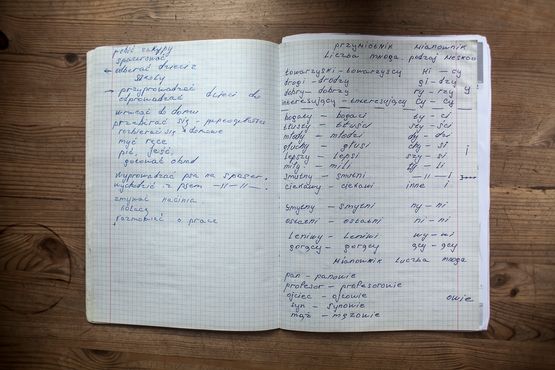 robić zakupy
spacerować
odbierać dzieci z
szkoły
przyprowadzać
odprowadzać dzieci do
wracać do domu
przebierać się -
rozbierać się z domowe
myć ręce
pić, jeść,
gotować obiad
wyprowadzać psa na spacer.
wychodzić z psem -II-II-.
zmywać naczynia
kolację
rozmawiać o pracе
Przymiotnik Mianownik
Liczba mnoga rodzaj męskoo
towarzyski - towarzyscy ki - cy
drogi - drodzy gi - dzy
dobry - dobrzy ry - rzy y
interesujący - interesujący cy - cy
bogaty - bogaci ty - ci
tłusty - tłuści sty - ści
młody - młodzi dy - dzi
głuchy - głusi chy - si i
lepszy - lepsi szy - si
miły - mili ły - li
smutny - smutni -II- i
ciekawy - ciekawi inne i
smutny - smutni ny - ni
ostatni - ostatni ni - ni
Leniwy - Leniwi wy - wi
gorący - gorący ący - ący
Mianownik Liczba mnoga
pan - panowie
profesor - profesorowie
ojciec - ojcowie owie
syn - synowie
mąż - mężowie